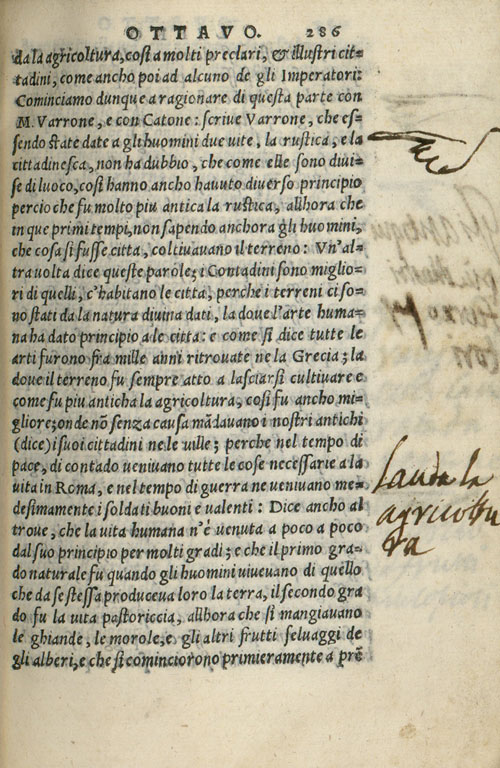 OTTAVO. 286
da la agricoltura, così a molti preclari, & illustri cit-
tadini, come ancho poi ad alcuno de gli Imperatori:
Cominciamo dunque a ragionare di questa parte con
M. Varrone, e con Catone: scriue Varrone, che es-
sendo state date a gli huomini due uite, la rustica, e la
cittadinesca, non ha dubbio, che come elle sono diui-
se di luoco, così hanno ancho hauuto diuerso principio
percio che fu molto piu antica la rustica, allhora che
in que primi tempi, non sapendo anchora gli huomini,
che cosa si fusse citta, coltiuauano il terreno: Vn'al-
tra uolta dice queste parole; i Contadini sono miglio-
ri di quelli, c'habitano le citta, perche i terreni ci so-
no stati da la natura diuina dati, la doue l'arte huma-
na ha dato principio a le citta: e come si dice tutte le
arti furono fra mille anni ritrouate ne la Grecia; la
doue il terreno fu sempre atto a lasciarsi cultiuare e
come fu piu anticha la agricoltura, così fu ancho mi-
gliore; onde nõ senza causa mãdauano i nostri antichi
(dice) i suoi cittadini ne le uille; perche nel tempo di
pace, di contado ueniuano tutte le cose necessarie a la
uita in Roma, e nel tempo di guerra ne ueniuano me-
desimamente i soldati buoni e ualenti: Dice ancho al
troue, che la uita humana n'è uenuta a poco a poco
dal suo principio per molti gradi; e che il primo gra-
do naturale fu quando gli huomini uiueuano di quello
che da se stessa produceua loro la terra, il secondo gra
do fu la uita pastoriccia, allhora che si mangiauano
le ghiande, le morole, e gli altri frutti seluaggi de
gli alberi, e che si cominciorono primieramente a prẽ
Lauda la
agricoltu
ra